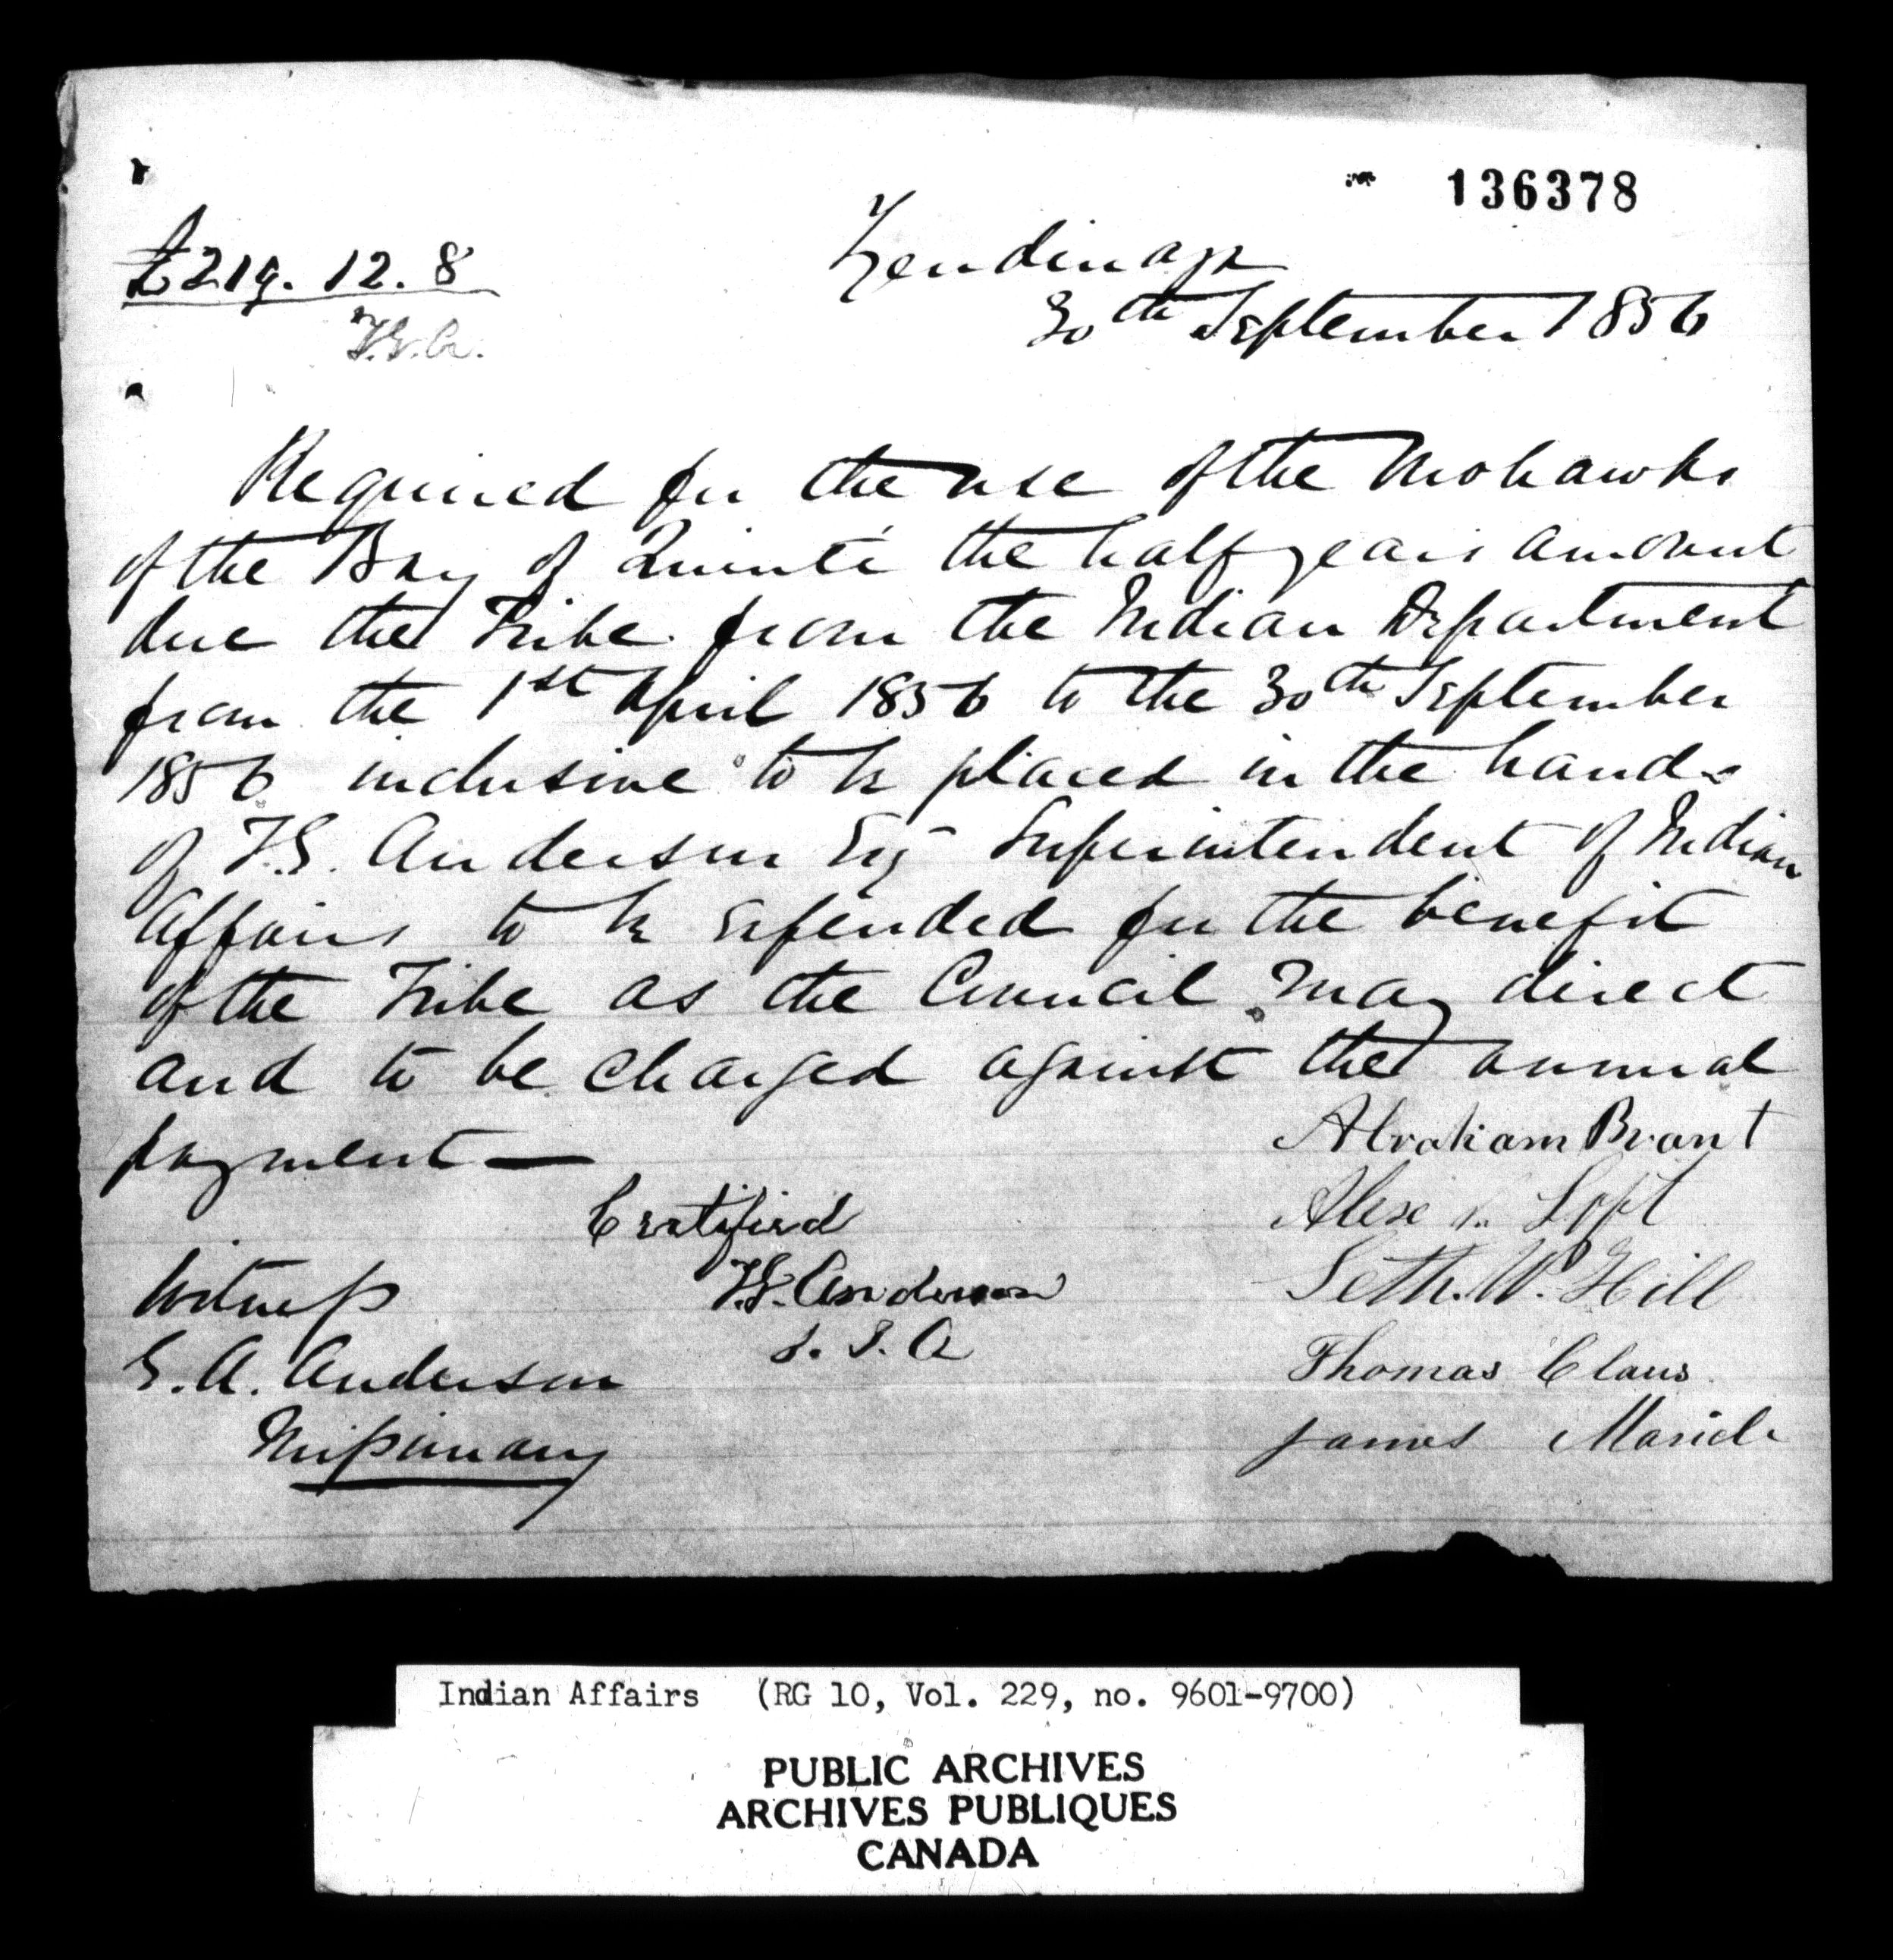 136378
£219. 12. 8
T.G.A.
Tyendinaga
30th September 1856
Required for the use of the Mohawks
of the Bay of Quinté the half years amount
due the Tribe from the Indian Department
from the 1st April 1856 to the 30th September
1856 inclusive to be placed in the hands
of T.G. Anderson Esq Superintendent of Indian
Affairs to be expended for the benefit
of the Tribe as the Council may direct
and to be charged against the annual
payment —
Abraham Brant
Certified
Alex L. Loft
Witness
T.G. Anderson
Seth. W. Hill
S. I. A
G. A. Anderson
Thomas Claus
Missionary
James Maricle
Indian Affairs (RG 10, Vol. 229, no. 9601-9700)
PUBLIC ARCHIVES
ARCHIVES PUBLIQUES
CANADA